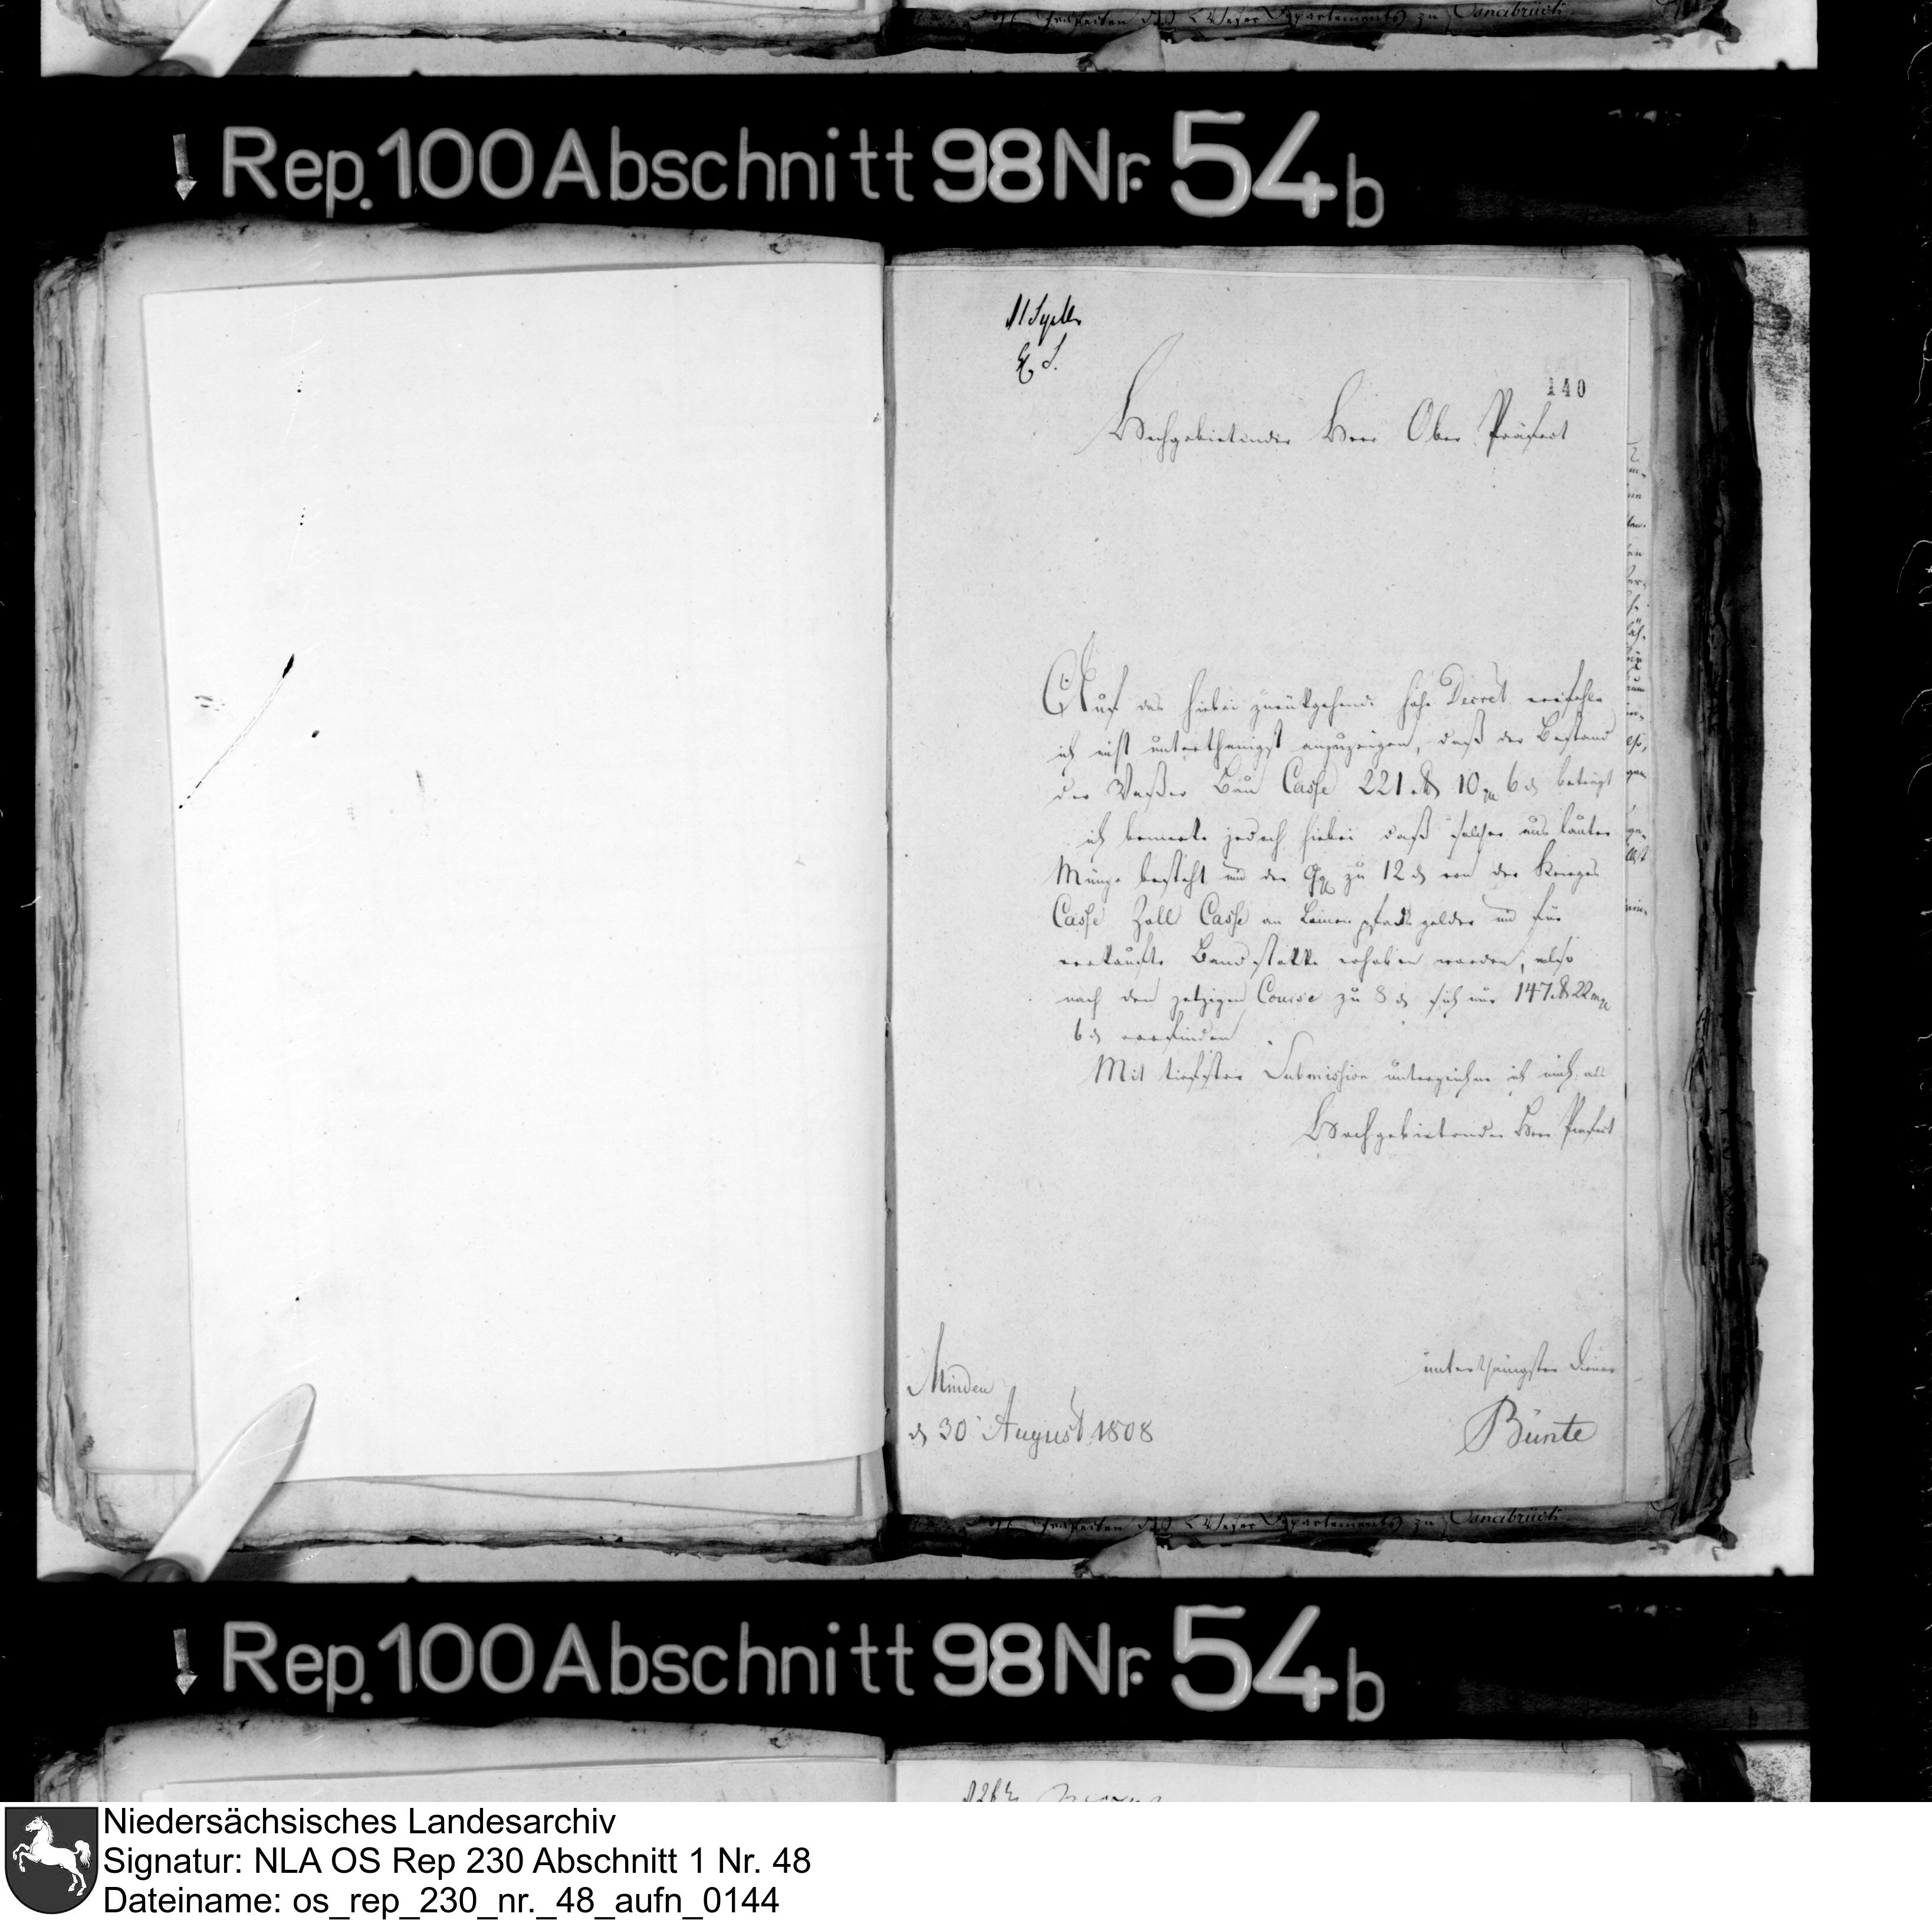 Rep. 100 Abschnitt 98 Nr. 54 b
140
Hochgebietender Herr Ober Präfect
Auf das hiebei zurükgehende hohe Decret verfehle
ich nicht unterthänigst anzuzeigen, daß der Bestand
der Waßer Bau Casse 221 10 6 beträgt
ich bemerke jedoch hiebei daß solcher aus lauter
Münze besteht und der zu 12 von der Krieges
Casse Zoll Casse an gelder und für
verkaufte erhoben worden, also
nach den jetzigen Course zu 8 sich nur 147 22
6 vorfinden
Mit tiefster Submission unterzeichne ich mich als
Hochgebietender Herr Präfect
unterthänigster Diener
Minden
d 30 August 1808
Bünte
des Weser Departements zu Osnabrück
Rep. 100 Abschnitt 98 Nr. 54 b
Niedersächsisches Landesarchiv
Signatur: NLA OS Rep 230 Abschnitt 1 Nr. 48
Dateiname: os_rep_230_nr._48_aufn_0144